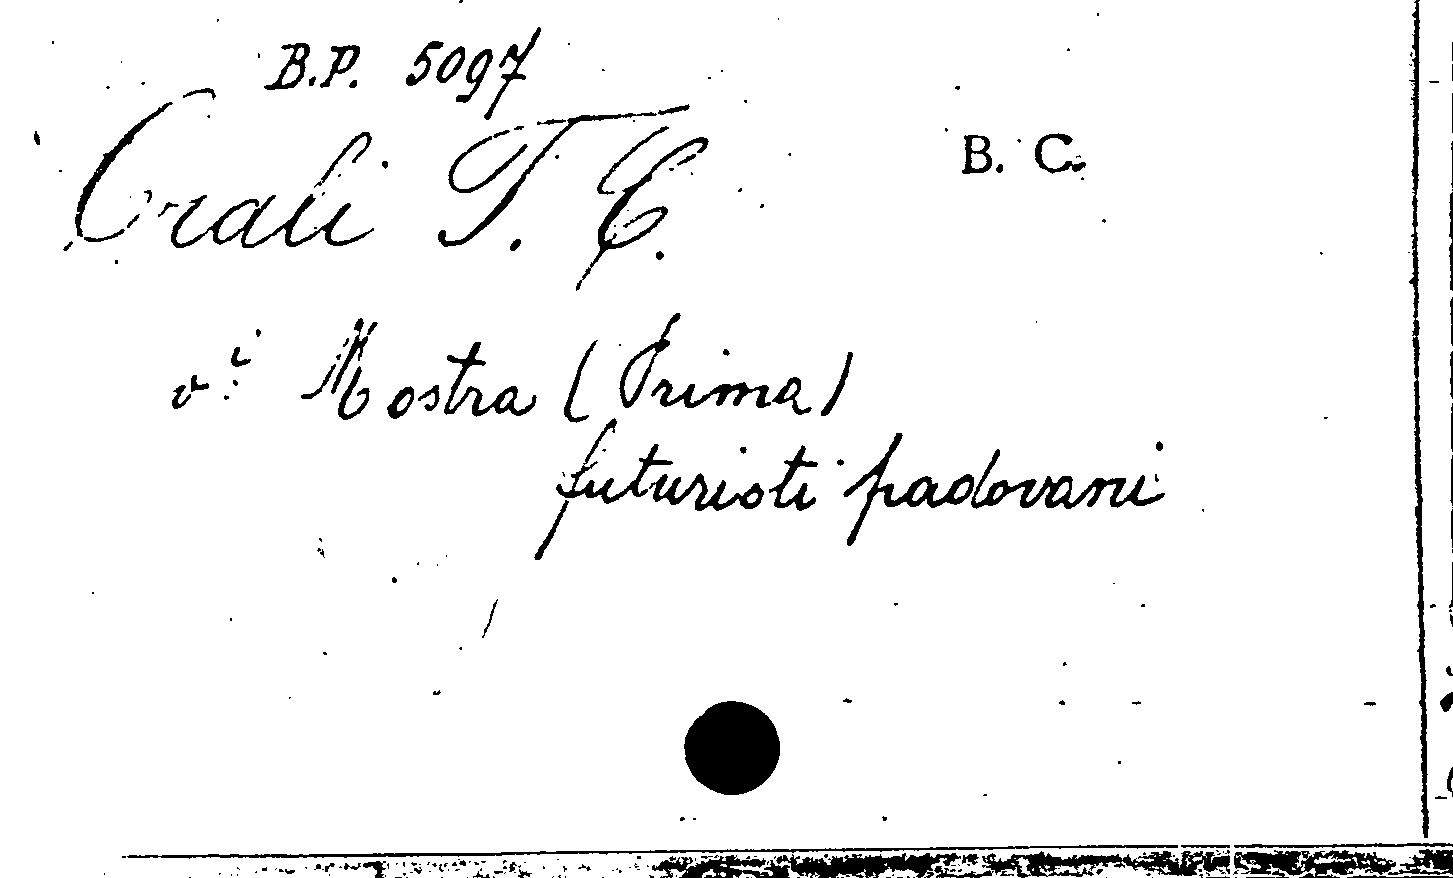 B.P. 5097
Crali T. C. B. C.
v. i Mostra (Prima)
futuristi padovani